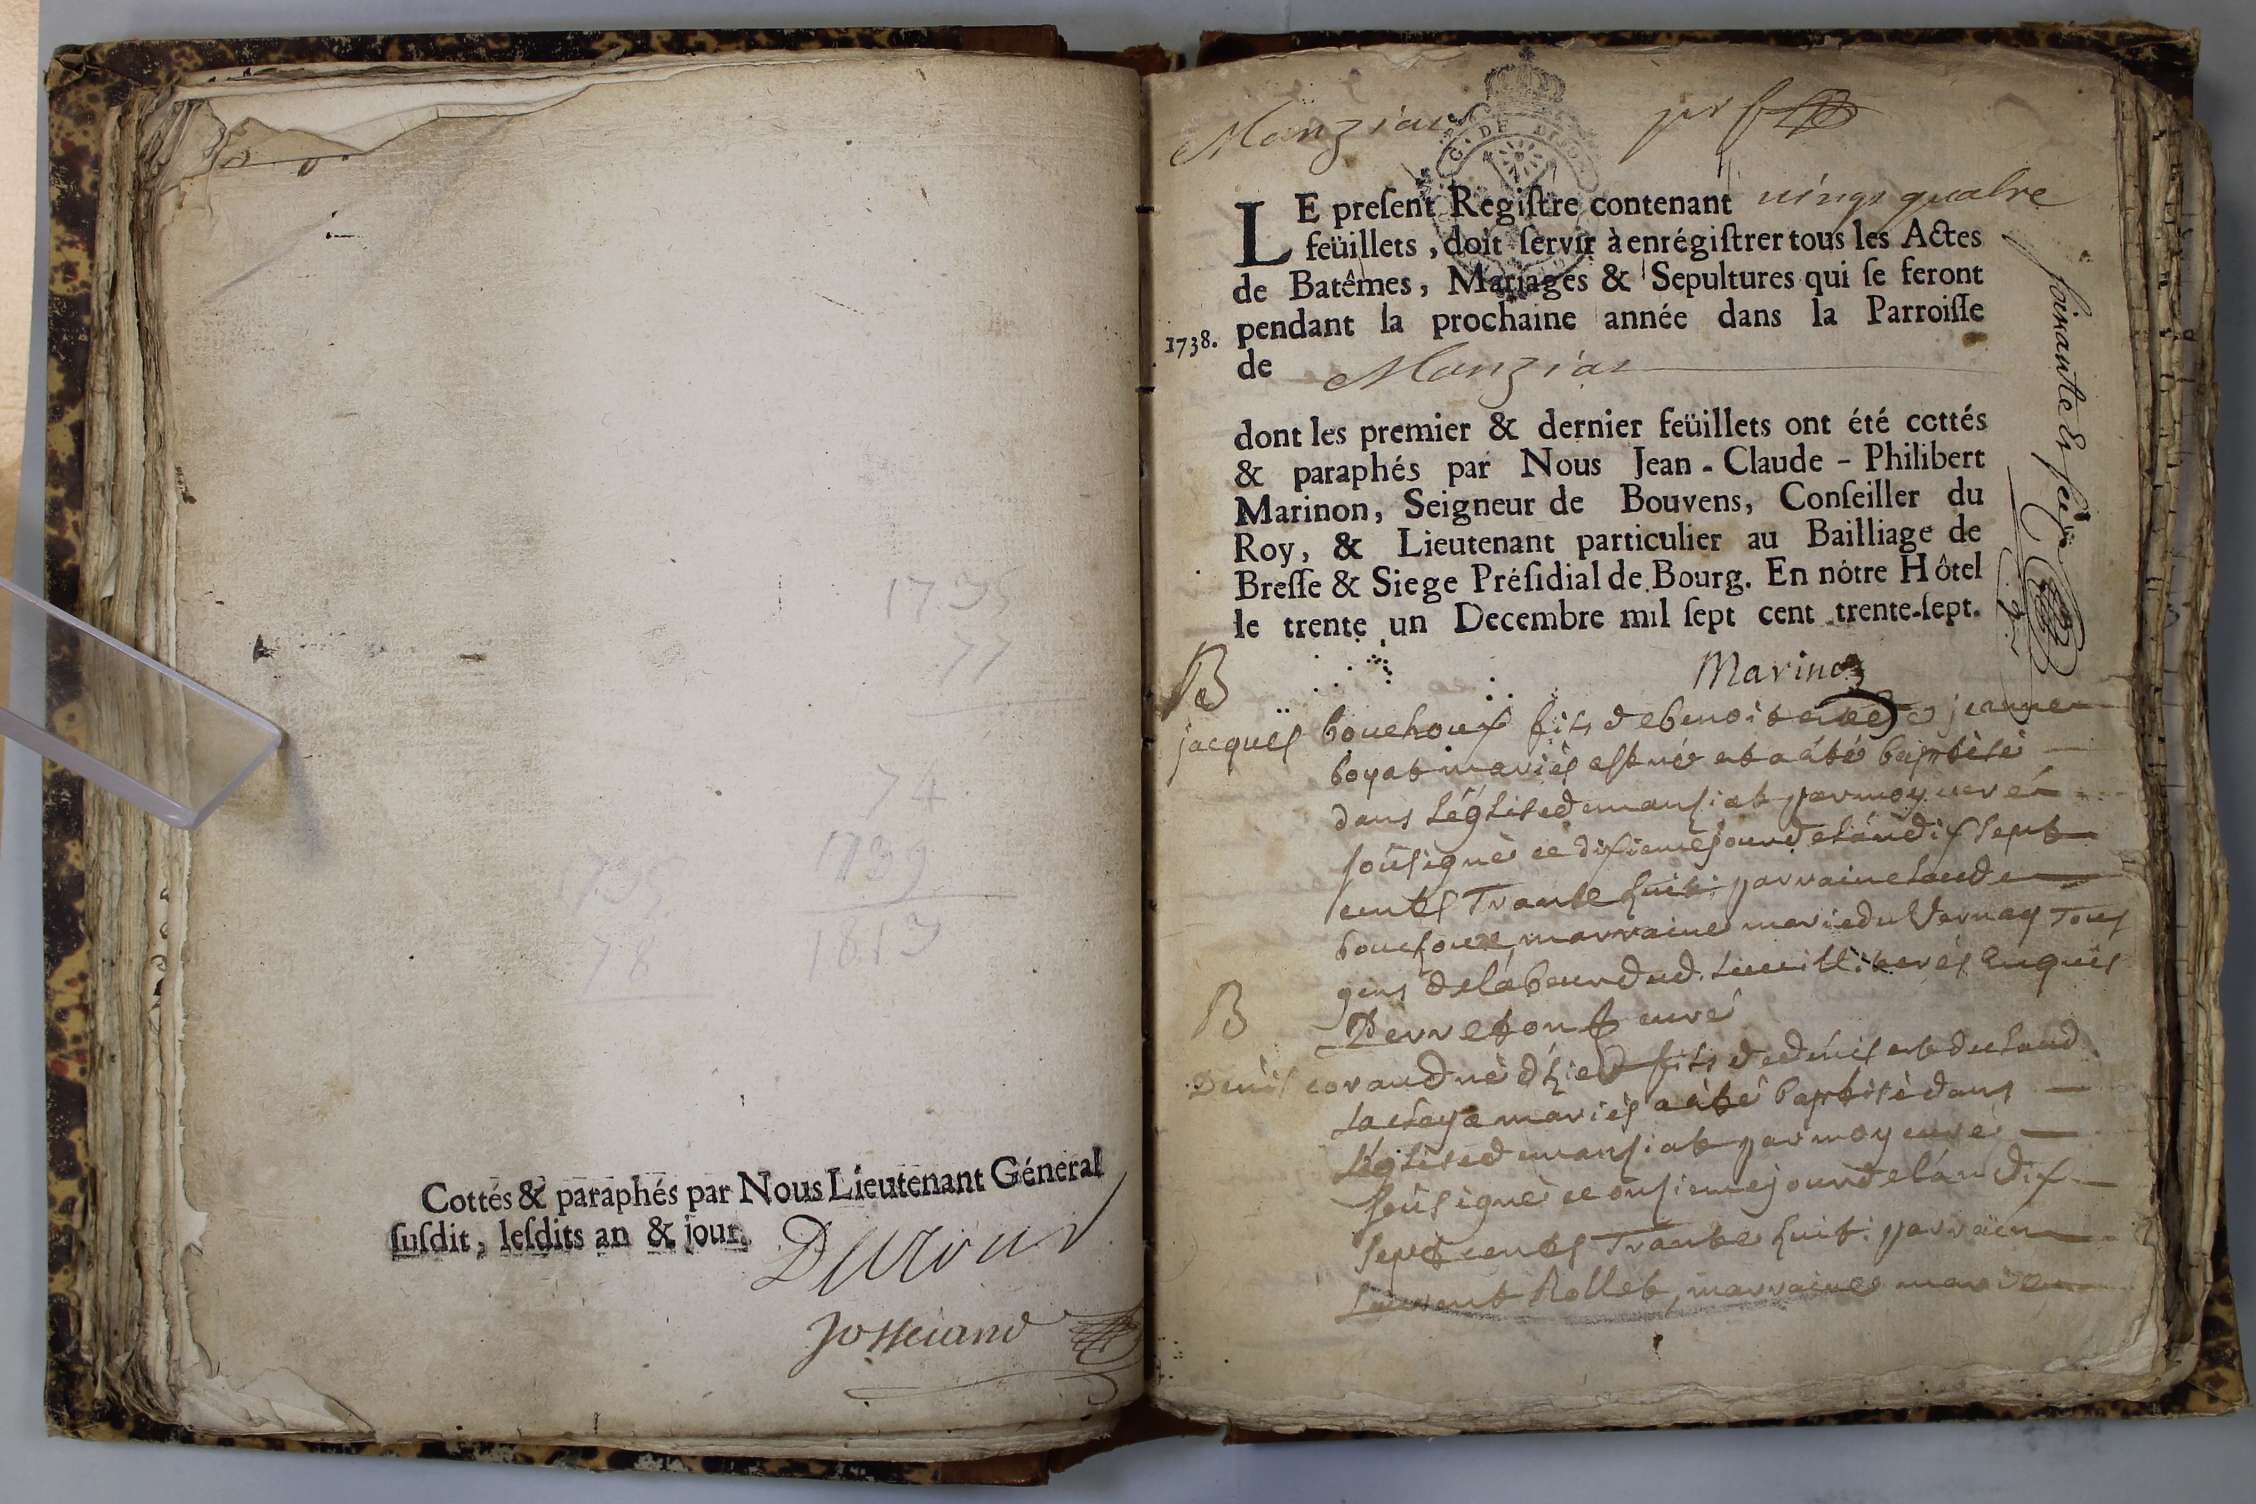 1735
77
74
1739
1735
1813
78
Cottés & paraphés par Nous Lieutenant Géneral
ſuſdit, leſdits an & jour.
Josserand
Manziat
G. DE DIJON
LE preſent Regiſtre contenant vingt quatre
feüillets, doit ſervir à enrégiſtrer tous les Actes
de Batêmes, Mariages & Sepultures qui ſe feront
pendant la prochaine année dans la Parroiſſe
1738.
de Manziat
dont les premier & dernier feüillets ont été cottés
& paraphés par Nous Jean-Claude-Philibert
Marinon, Seigneur de Bouvens, Conſeiller du
Roy, & Lieutenant particulier au Bailliage de
Breſſe & Siege Préſidial de Bourg. En nôtre Hôtel
le trente un Decembre mil ſept cent trente-ſept.
soixante et seize
Marinon
B
jacques bouchoux fils de benoit et de jeanne
boyat mariés est né et a été baptisé
dans l'église de mansiat par moy curé
sousigné ce dixieme jour de l'an dix sept
cents trante huit parrain claude
bouchoux, marraine marie du Vernay tous
gens de labeur dud. lieu illiterés enquis
Perreton curé
B
Denis corand né d'hier fils de denis et de claud.
la claye mariés a été baptisé dans
l'église de mansiat par moy curé
sousigné ce onsieme jour de l'an dix
sept cents trante huit. parrain
Laurent Rollet, marraine marie